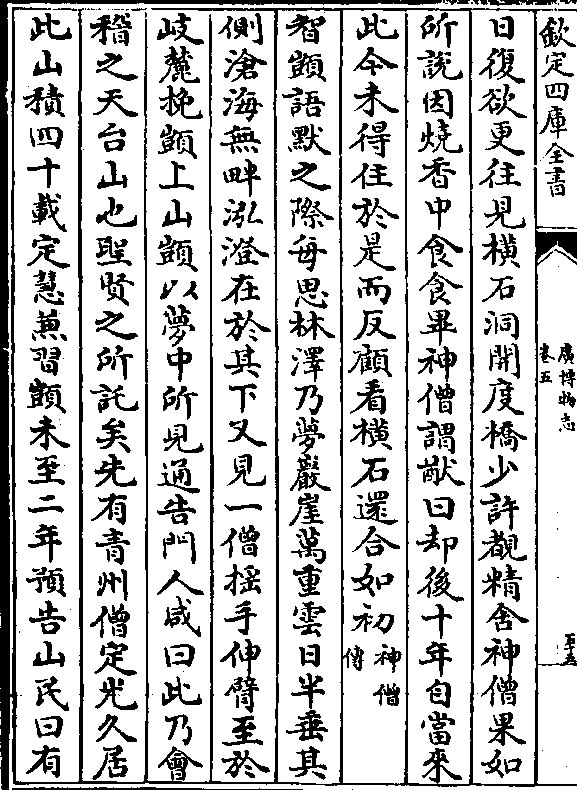 欽定四庫全書
廣博物志
卷五
日復欲更往見橫石洞開度橋少許覩精舍神僧果如
所說因燒香中食食畢神僧謂猷曰却後十年自當來
此今未得住於是而反顧看橫石還合如初神僧傳
智顗語默之際每思林澤乃夢巖崖萬重雲日半垂其
側滄海無畔泓澄在於其下又見一僧揺手伸臂至於
岐麓挽顗上山顗以夢中所見通告門人咸曰此乃會
稽之天台山也聖賢之所託矣先有青州僧定光久居
此山積四十載定慧兼習顗未至二年預告山民曰有